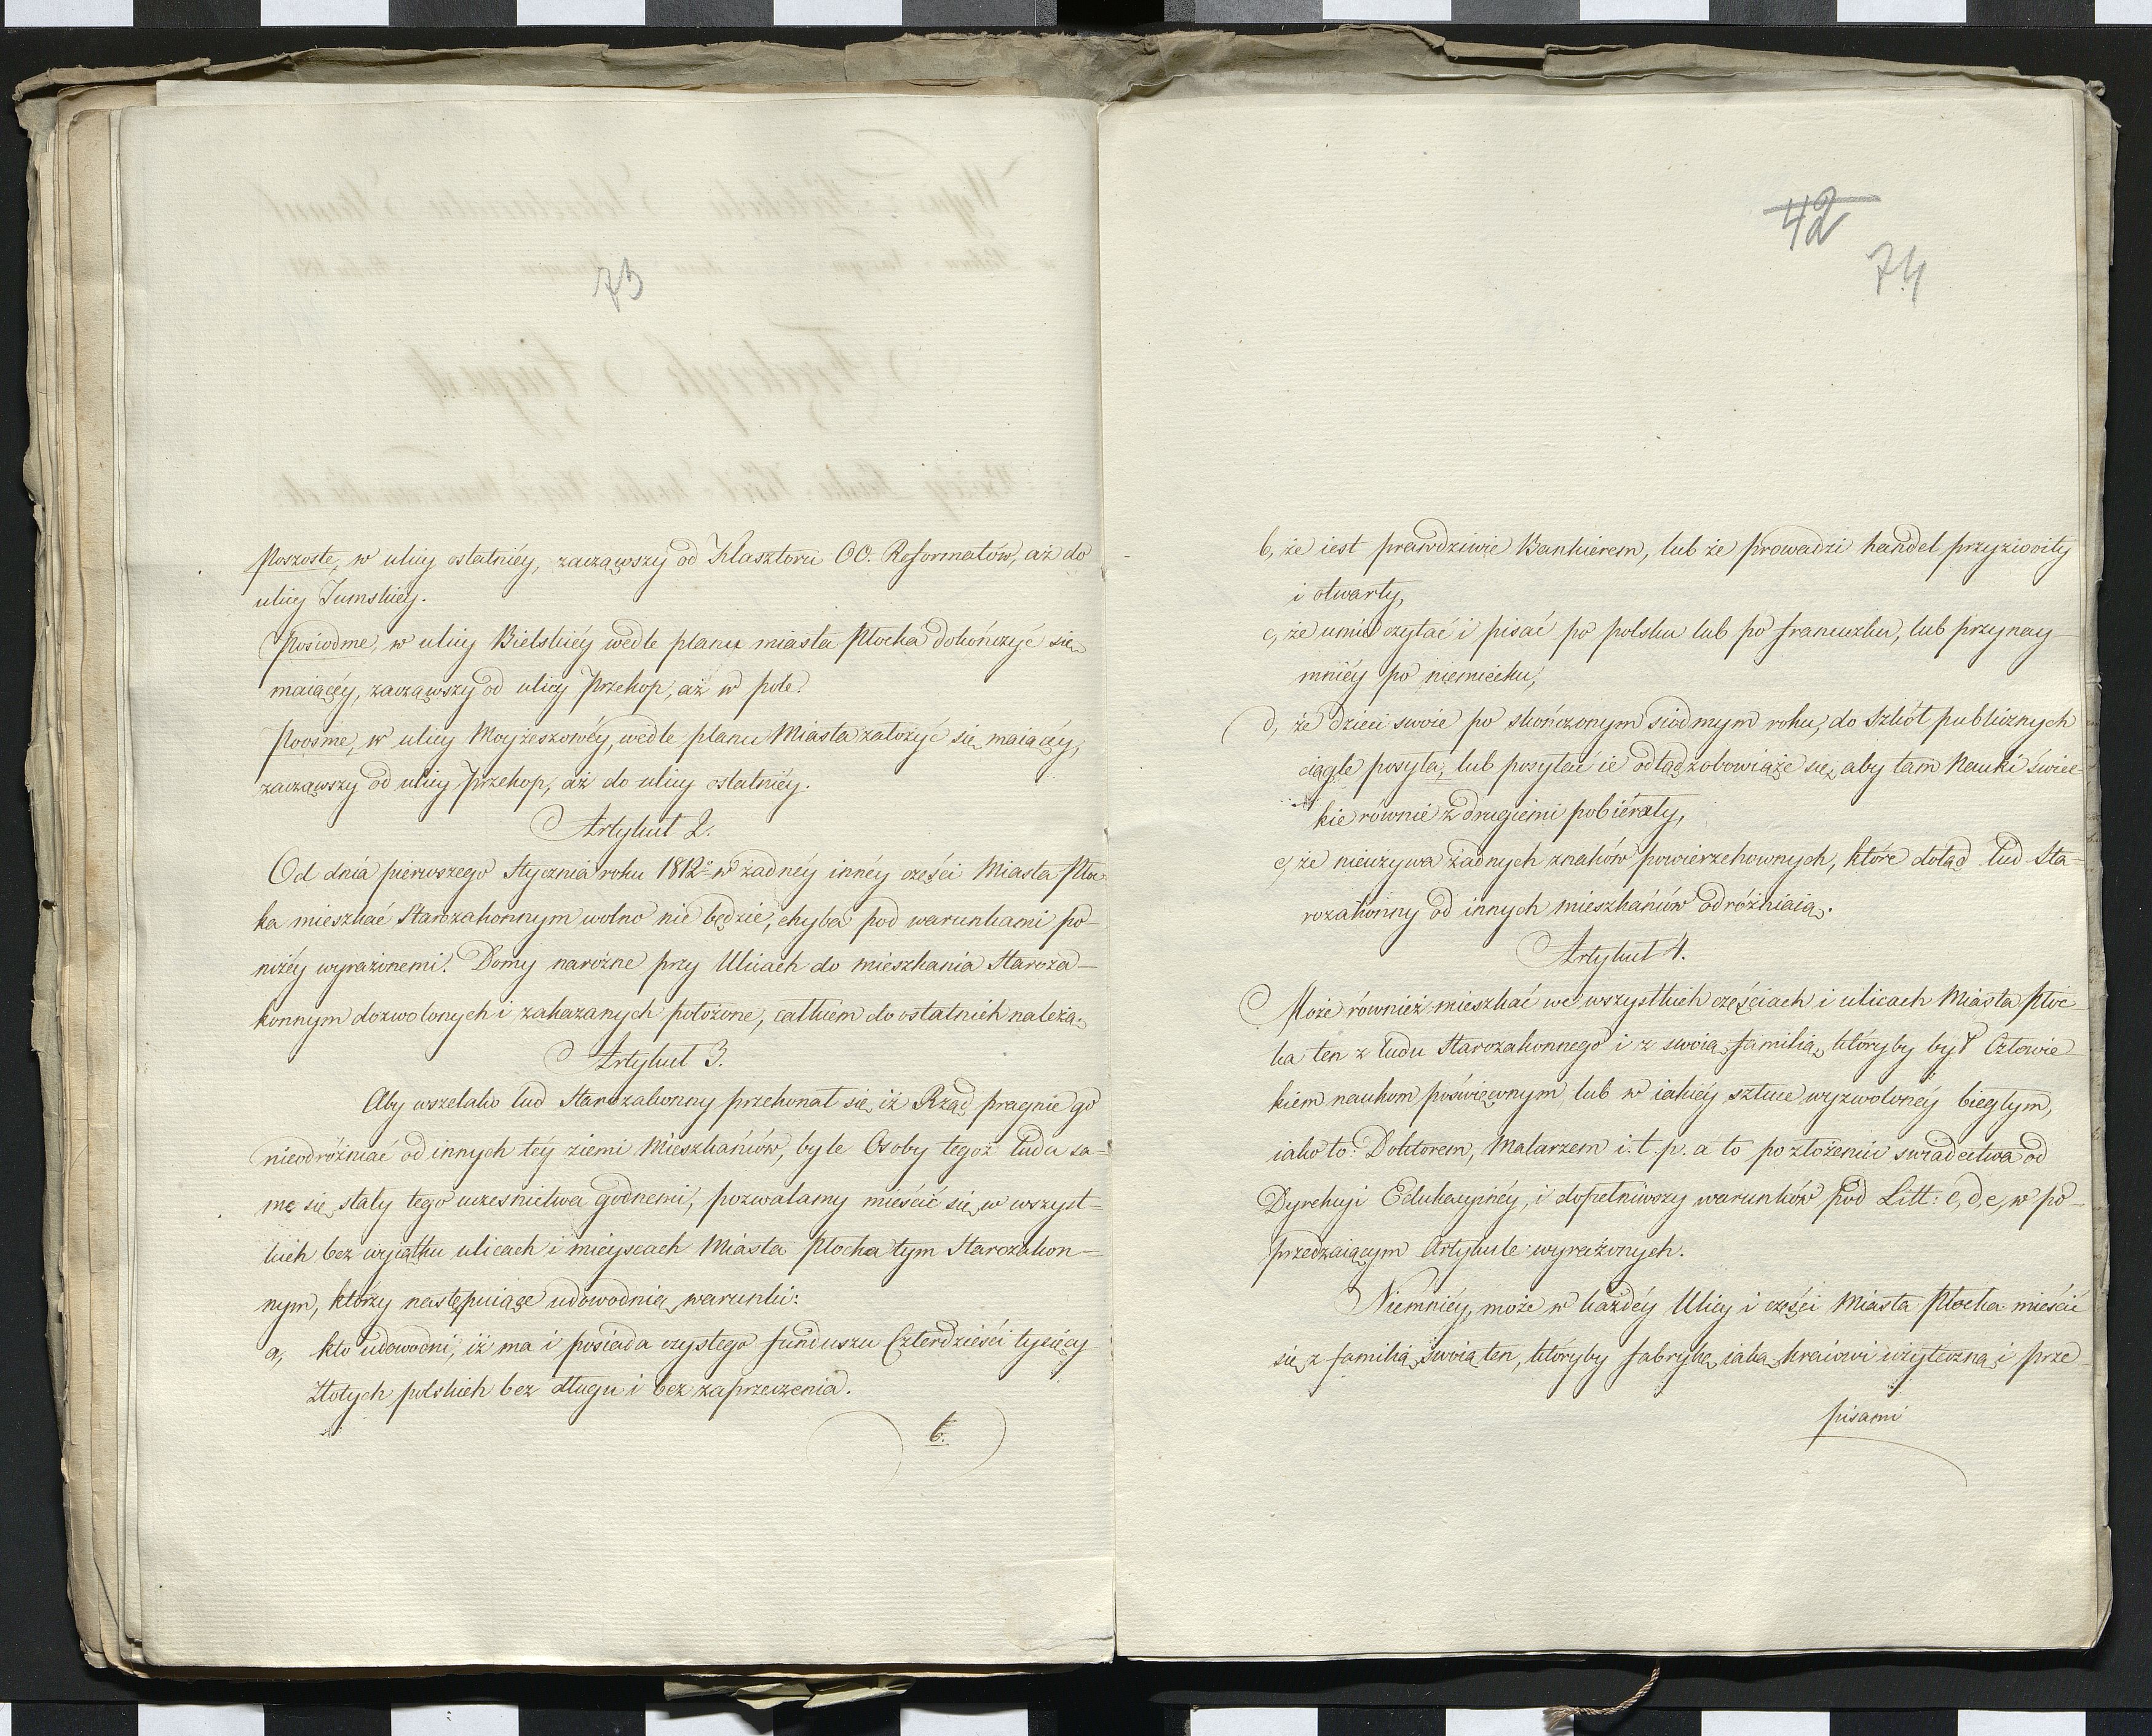 73
Poszoste, w ulicy ostatniéy, zacząwszy od Klasztoru OO. Reformatów, aż do
ulicy Tumskiéy.
Posiodme, w ulicy Bielskiéy wedle planu miasta Płocka dokończyć się
maiącéy, zacząwszy od ulicy Przekop, aż w pole.
Poosme, w ulicy Moyżeszowéy, wedle planu Miasta założyć się maiącéy,
zacząwszy od ulicy Przekop, aż do ulicy ostatniéy.
Artykuł 2.
Od dnia pierwszego Stycznia roku 1812º w żadnéy innéy części Miasta Płoc-
ka mieszkać Starozakonnym wolno nie będzie, chyba pod warunkami po-
niżéy wyrażonemi. Domy narożne przy Ulicach do mieszkania Staroza-
konnym dozwolonych i zakazanych położone, całkiem do ostatnich należą.
Artykuł 3.
Aby wszelako lud Starozakonny przekonał się iż Rząd pragnie go
nieodróżniać od innych téy ziemi Mieszkańców, byle Osoby tegoż ludu sa-
me się stały tego uczesnictwa godnemi, pozwalamy mieścić się w wszyst-
kich bez wyiątku ulicach i mieyscach Miasta Płocka tym Starozakon-
nym, którzy następuiące udowodnią warunki:
a, kto udowodni, iż ma i posiada czystego funduszu Czterdzieści tysięcy
złotych polskich bez długu i bez zaprzeczenia.
b.
42
74
b, że iest prawdziwie Bankierem, lub że prowadzi handel przyzwoity
i otwarty,
c, że umie czytać i pisać po polsku lub po francuzku, lub przynay-
mniéy po niemiecku,
d, że dzieci swoie po skończonym siódmym roku, do Szkół publicznych
ciągle posyła, lub posyłać ie odtąd zobowiąże się, aby tam Nauki świec-
kie równie z drugiemi pobiérały,
e, że nieużywa żadnych znaków powierzchownych, które dotąd lud Sta-
rozakonny od innych mieszkańców odróżniaią.
Artykuł 4.
Może również mieszkać we wszystkich częściach i ulicach Miasta Płoc-
ka ten z ludu Starozakonnego i z swoią familią, któryby był Człowie-
kiem naukom poświęconym lub w iakiéy sztuce wyzwolonéy biegłym,
iako to: Doktorem, Malarzem i.t.p. a to po złożeniu swiadectwa od
Dyrekcyi Edukacyinéy, i dopełniwszy warunków pod Litt: c, d, e, w po-
przedzaiącym Artykule wyrażonych.
Niemniéy, może w każdéy Ulicy i części Miasta Płocka mieścić
się z familią swoią ten, któryby fabrykę iaką kraiowi użyteczną i prze-
pisami